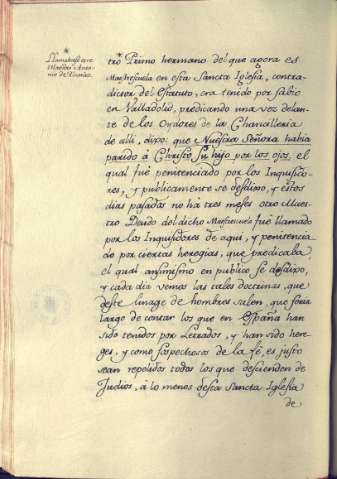 *
Llamabase este
Maestro Anto-
nio de
tro* Primo hermano del que agora es
Maestrescuela en esta Sancta Iglesia, contra-
dictor del Estatuto, era tenido por sabio
en Valladolid, predicando una vez delan-
te de los Oydores de la Chancilleria
de alli, dixo que Nuestra Señora habia
parido á Christo su hijo por los ojos, el
qual fué penitenciado por los Inquisido-
res, y publicamente se desdixo, y estos
dias pasados no ha tres meses otro Maes-
tro Deudo del dicho Maestrescuela fué llamado
por los Inquisidores de aqui, y penitencia-
do por ciertas heregias, que predicaba,
el qual ansimismo en publico se desdixo,
y cada dia vemos las tales doctrinas, que
deste linage de hombres salen, que sería
largo de contar los que en España han
sido tenidos por Letrados, y han sido here-
ges, y como sospechosos de la fé, es justo
sean repelidos todos los que descienden de
Judios, á lo menos desta Sancta Iglesia
de